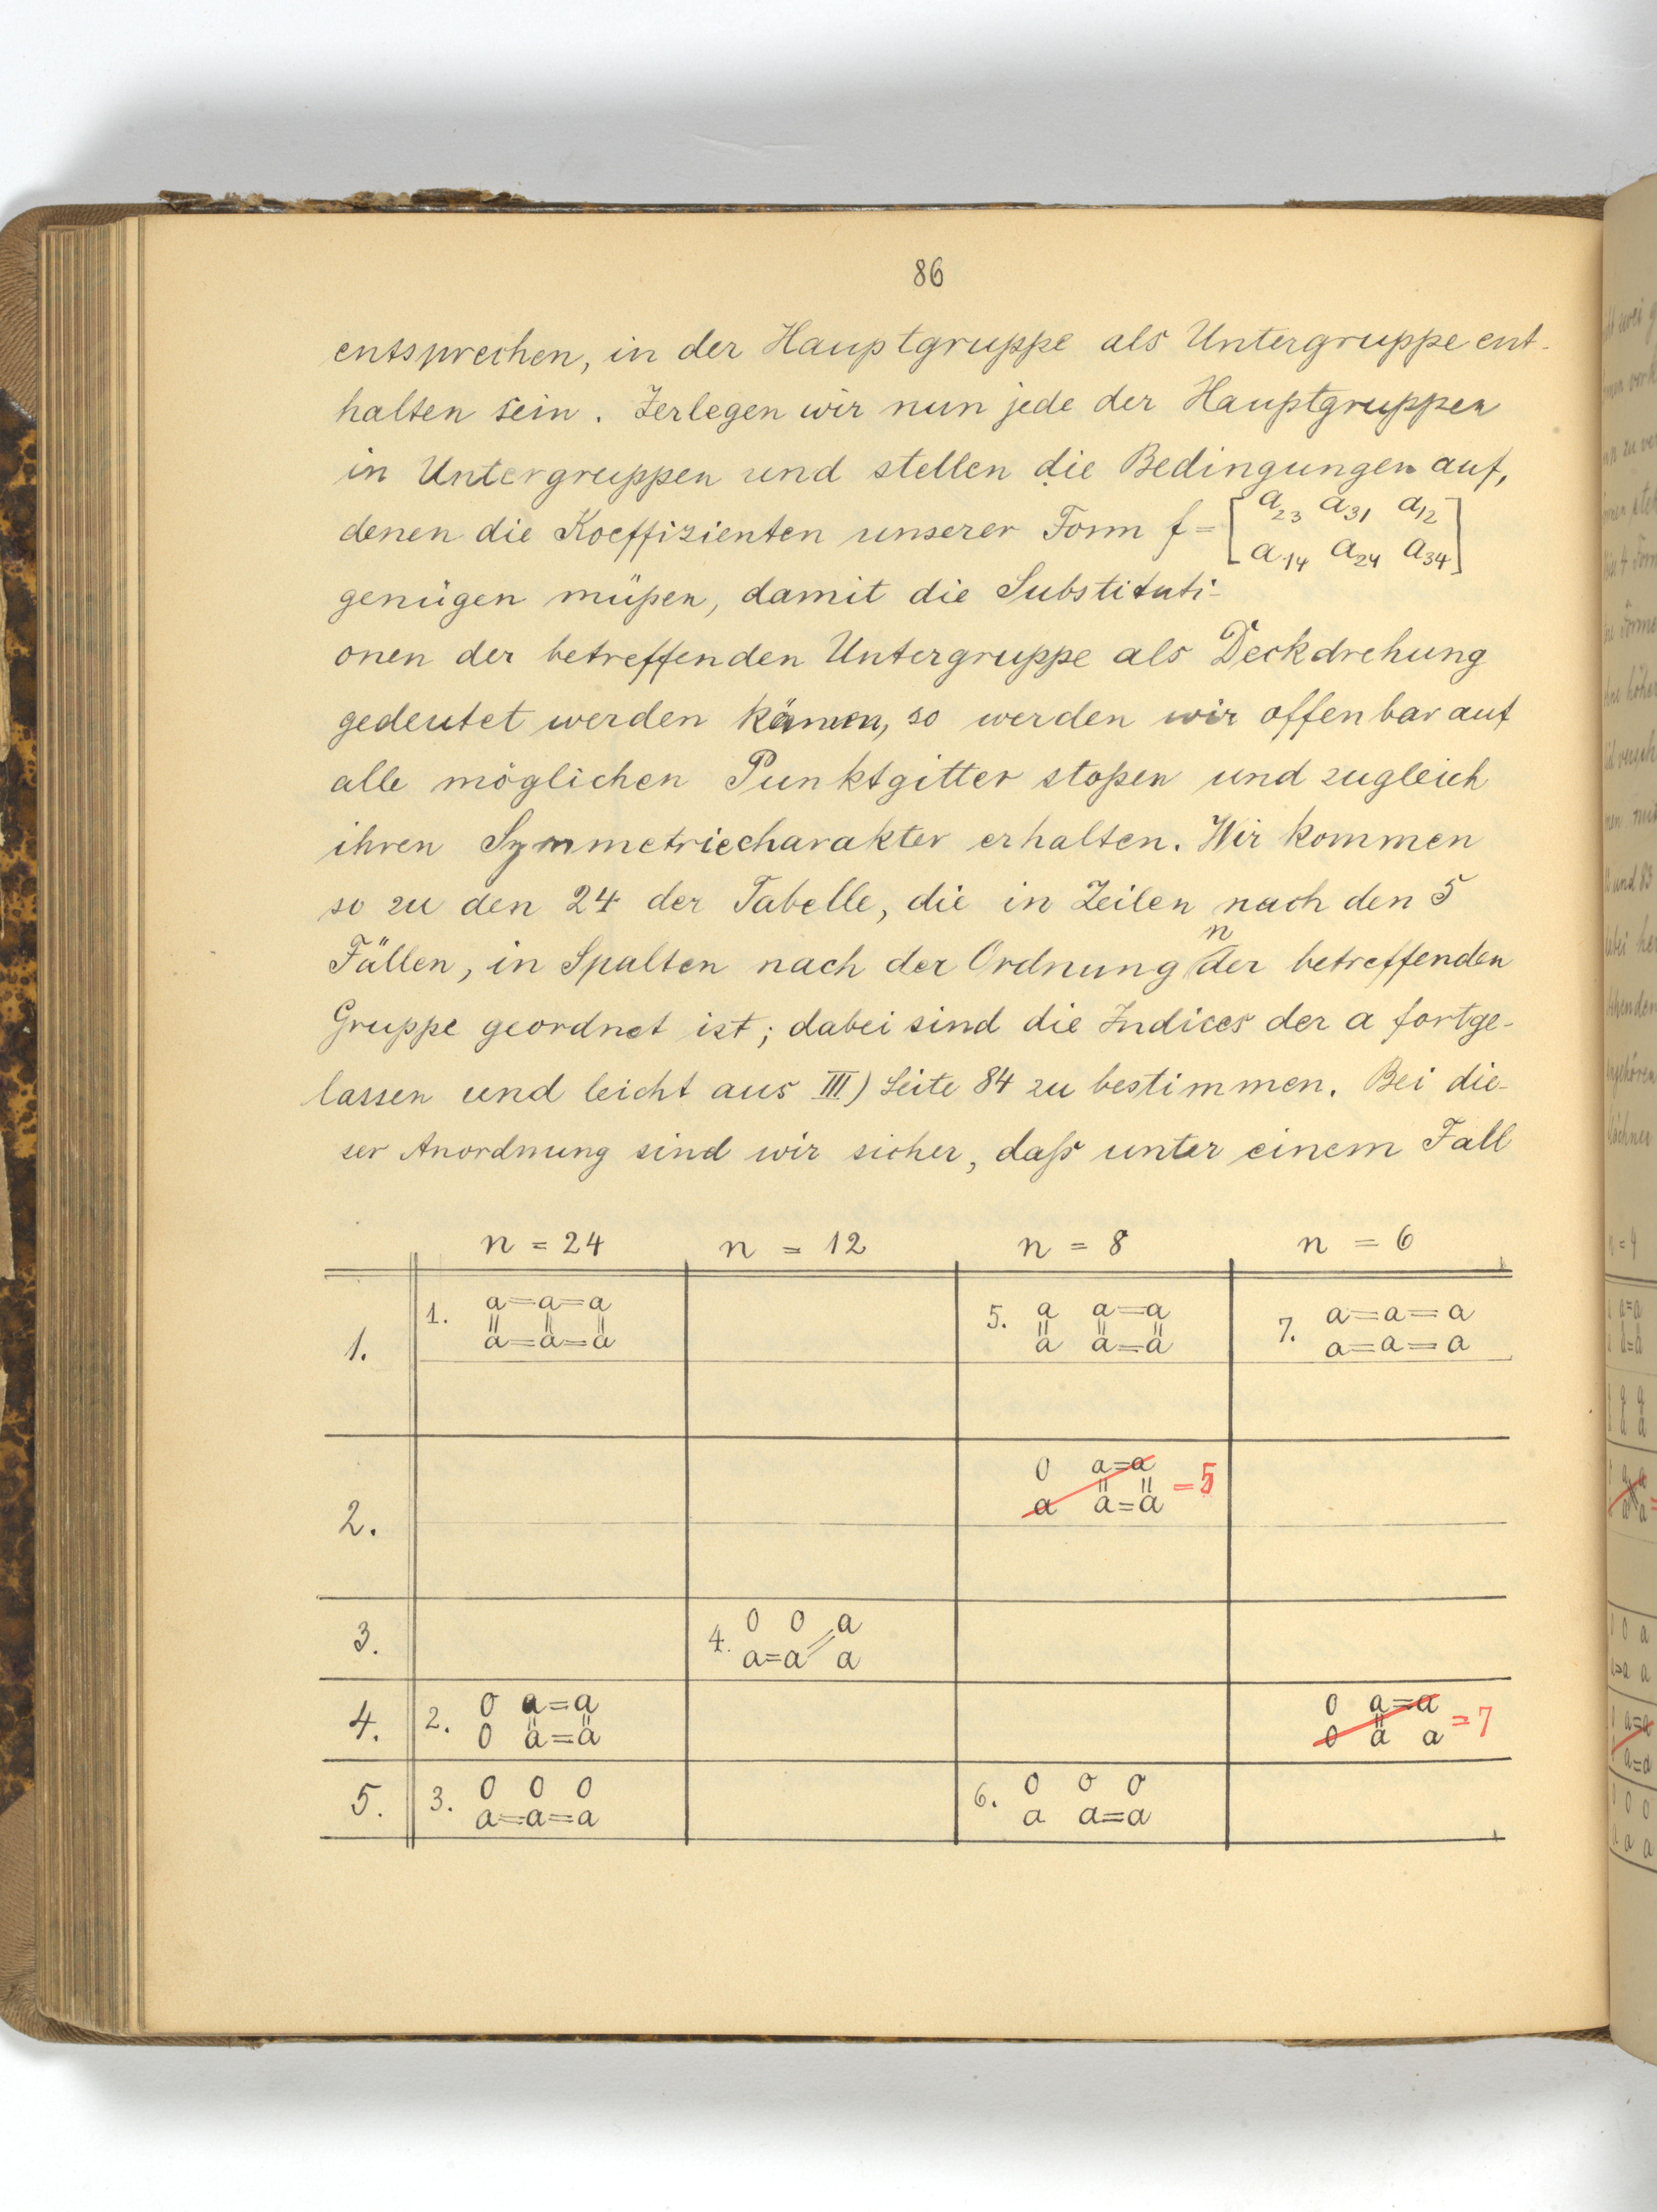 86
entsprechen, in der Hauptgruppe als Untergruppe ent-
halten sein. Zerlegen wir nun jede der Hauptgruppen
in Untergruppen und stellen die Bedingungen auf,
denen die Koeffizienten unserer Form f = [a₂₃ a₃₁ a₁₂
a₁₄ a₂₄ a₃₄]
genügen müßen, damit die Substituti-
onen der betreffenden Untergruppe als Deckdrehung
gedeutet werden können, so werden wir offenbar auf
alle möglichen Punktgitter stoßen und zugleich
ihren Symmetriecharakter erhalten. Wir kommen
so zu den 24 der Tabelle, die in Zeilen nach den 5
Fällen, in Spalten nach der Ordnung n der betreffenden
Gruppe geordnet ist; dabei sind die Indices der a fortge-
lassen und leicht aus III) Seite 84 zu bestimmen. Bei die-
ser Anordnung sind wir sicher, daß unter einem Fall
n = 24 n = 12 n = 8 n = 6
1. 1. a=a=a 5. a a=a 7. a=a=a
|| || || || || ||
a=a=a a a=a a=a=a
2. 0 a=a = 5
|| ||
a a=a
3. 4. 0 0 a
a=a // a
4. 2. 0 a=a 0 a=a = 7
|| || ||
0 a=a 0 a a
5. 3. 0 0 0 6. 0 0 0
a=a=a a a=a